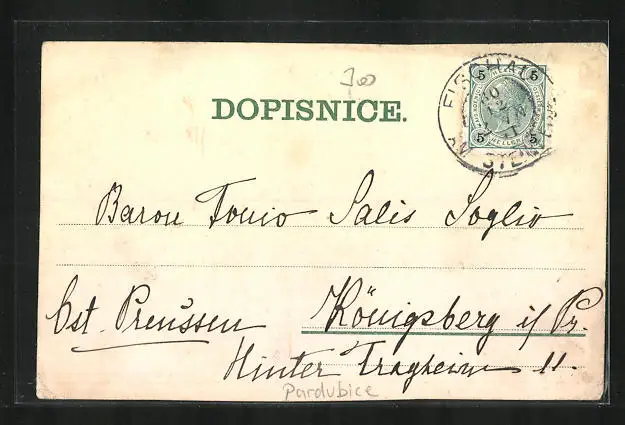 300
DOPISNICE.
5 5
HELLER
5 5
Baron Tonio Salis Soglio
Ost. Preussen Königsberg i/ Pr.
Hinter Tragheim 11.
Pardubice